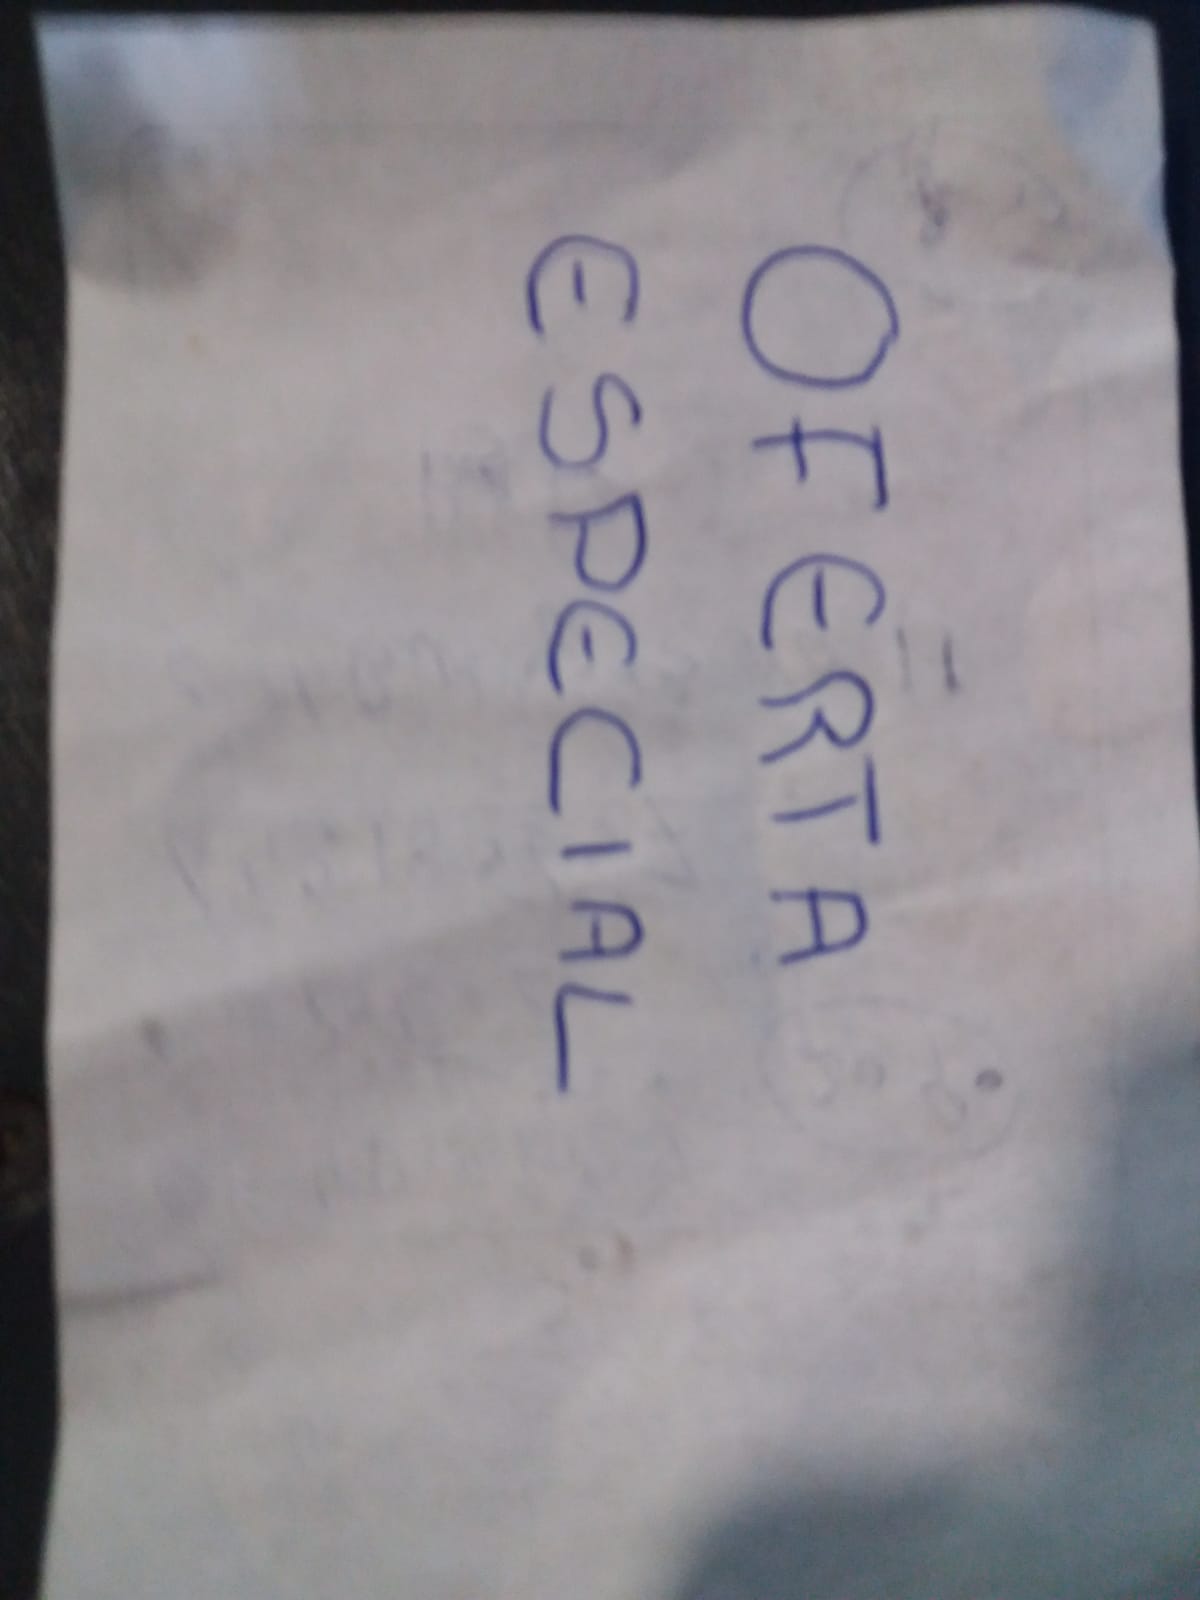 OFERTA
ESPECIAL